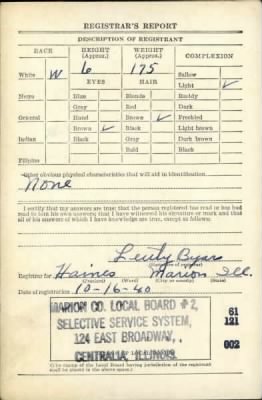 REGISTRAR'S REPORT
DESCRIPTION OF REGISTRANT
RACE HEIGHT (Approx.) WEIGHT (Approx.) COMPLEXION
White W 6 175 Sallow
EYES HAIR Light ✓
Negro Blue Blonde Ruddy
Gray Red Dark
Oriental Hazel Brown ✓ Freckled
Brown ✓ Black Light brown
Indian Black Gray Dark brown
Bald Black
Filipino
Other obvious physical characteristics that will aid in identification
None
I certify that my answers are true; that the person registered has read or has had
read to him his own answers; that I have witnessed his signature or mark and that
all of his answers of which I have knowledge are true, except as follows:
Byars
Registrar for Haines Marion Ill.
(Precinct) (Ward) (City or county) (State)
Date of registration 10-16-40
MARION CO. LOCAL BOARD # 2,
SELECTIVE SERVICE SYSTEM,
124 EAST BROADWAY,
CENTRALIA, ILLINOIS.
61
121
002
(The stamp of the Local Board having jurisdiction of the registrant
shall be placed in the above space)